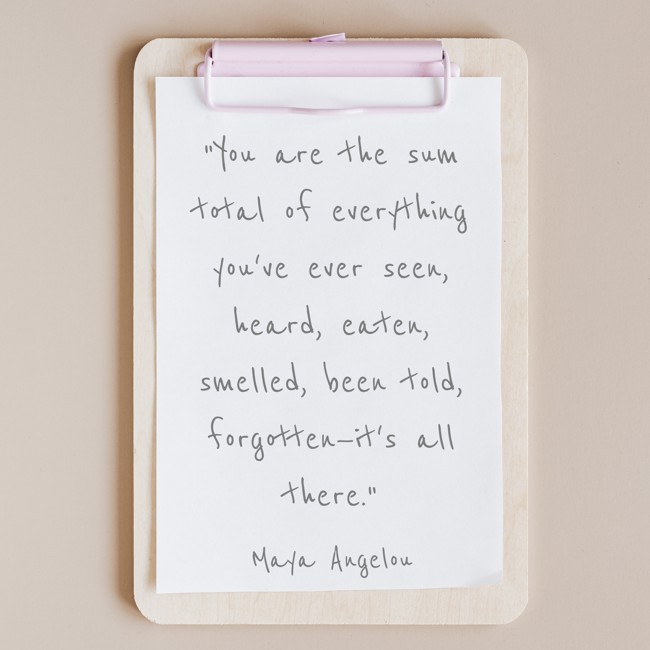 "You are the sum
total of everything
you've ever seen,
heard, eaten,
smelled, been told,
forgotten—it's all
there."
Maya Angelou